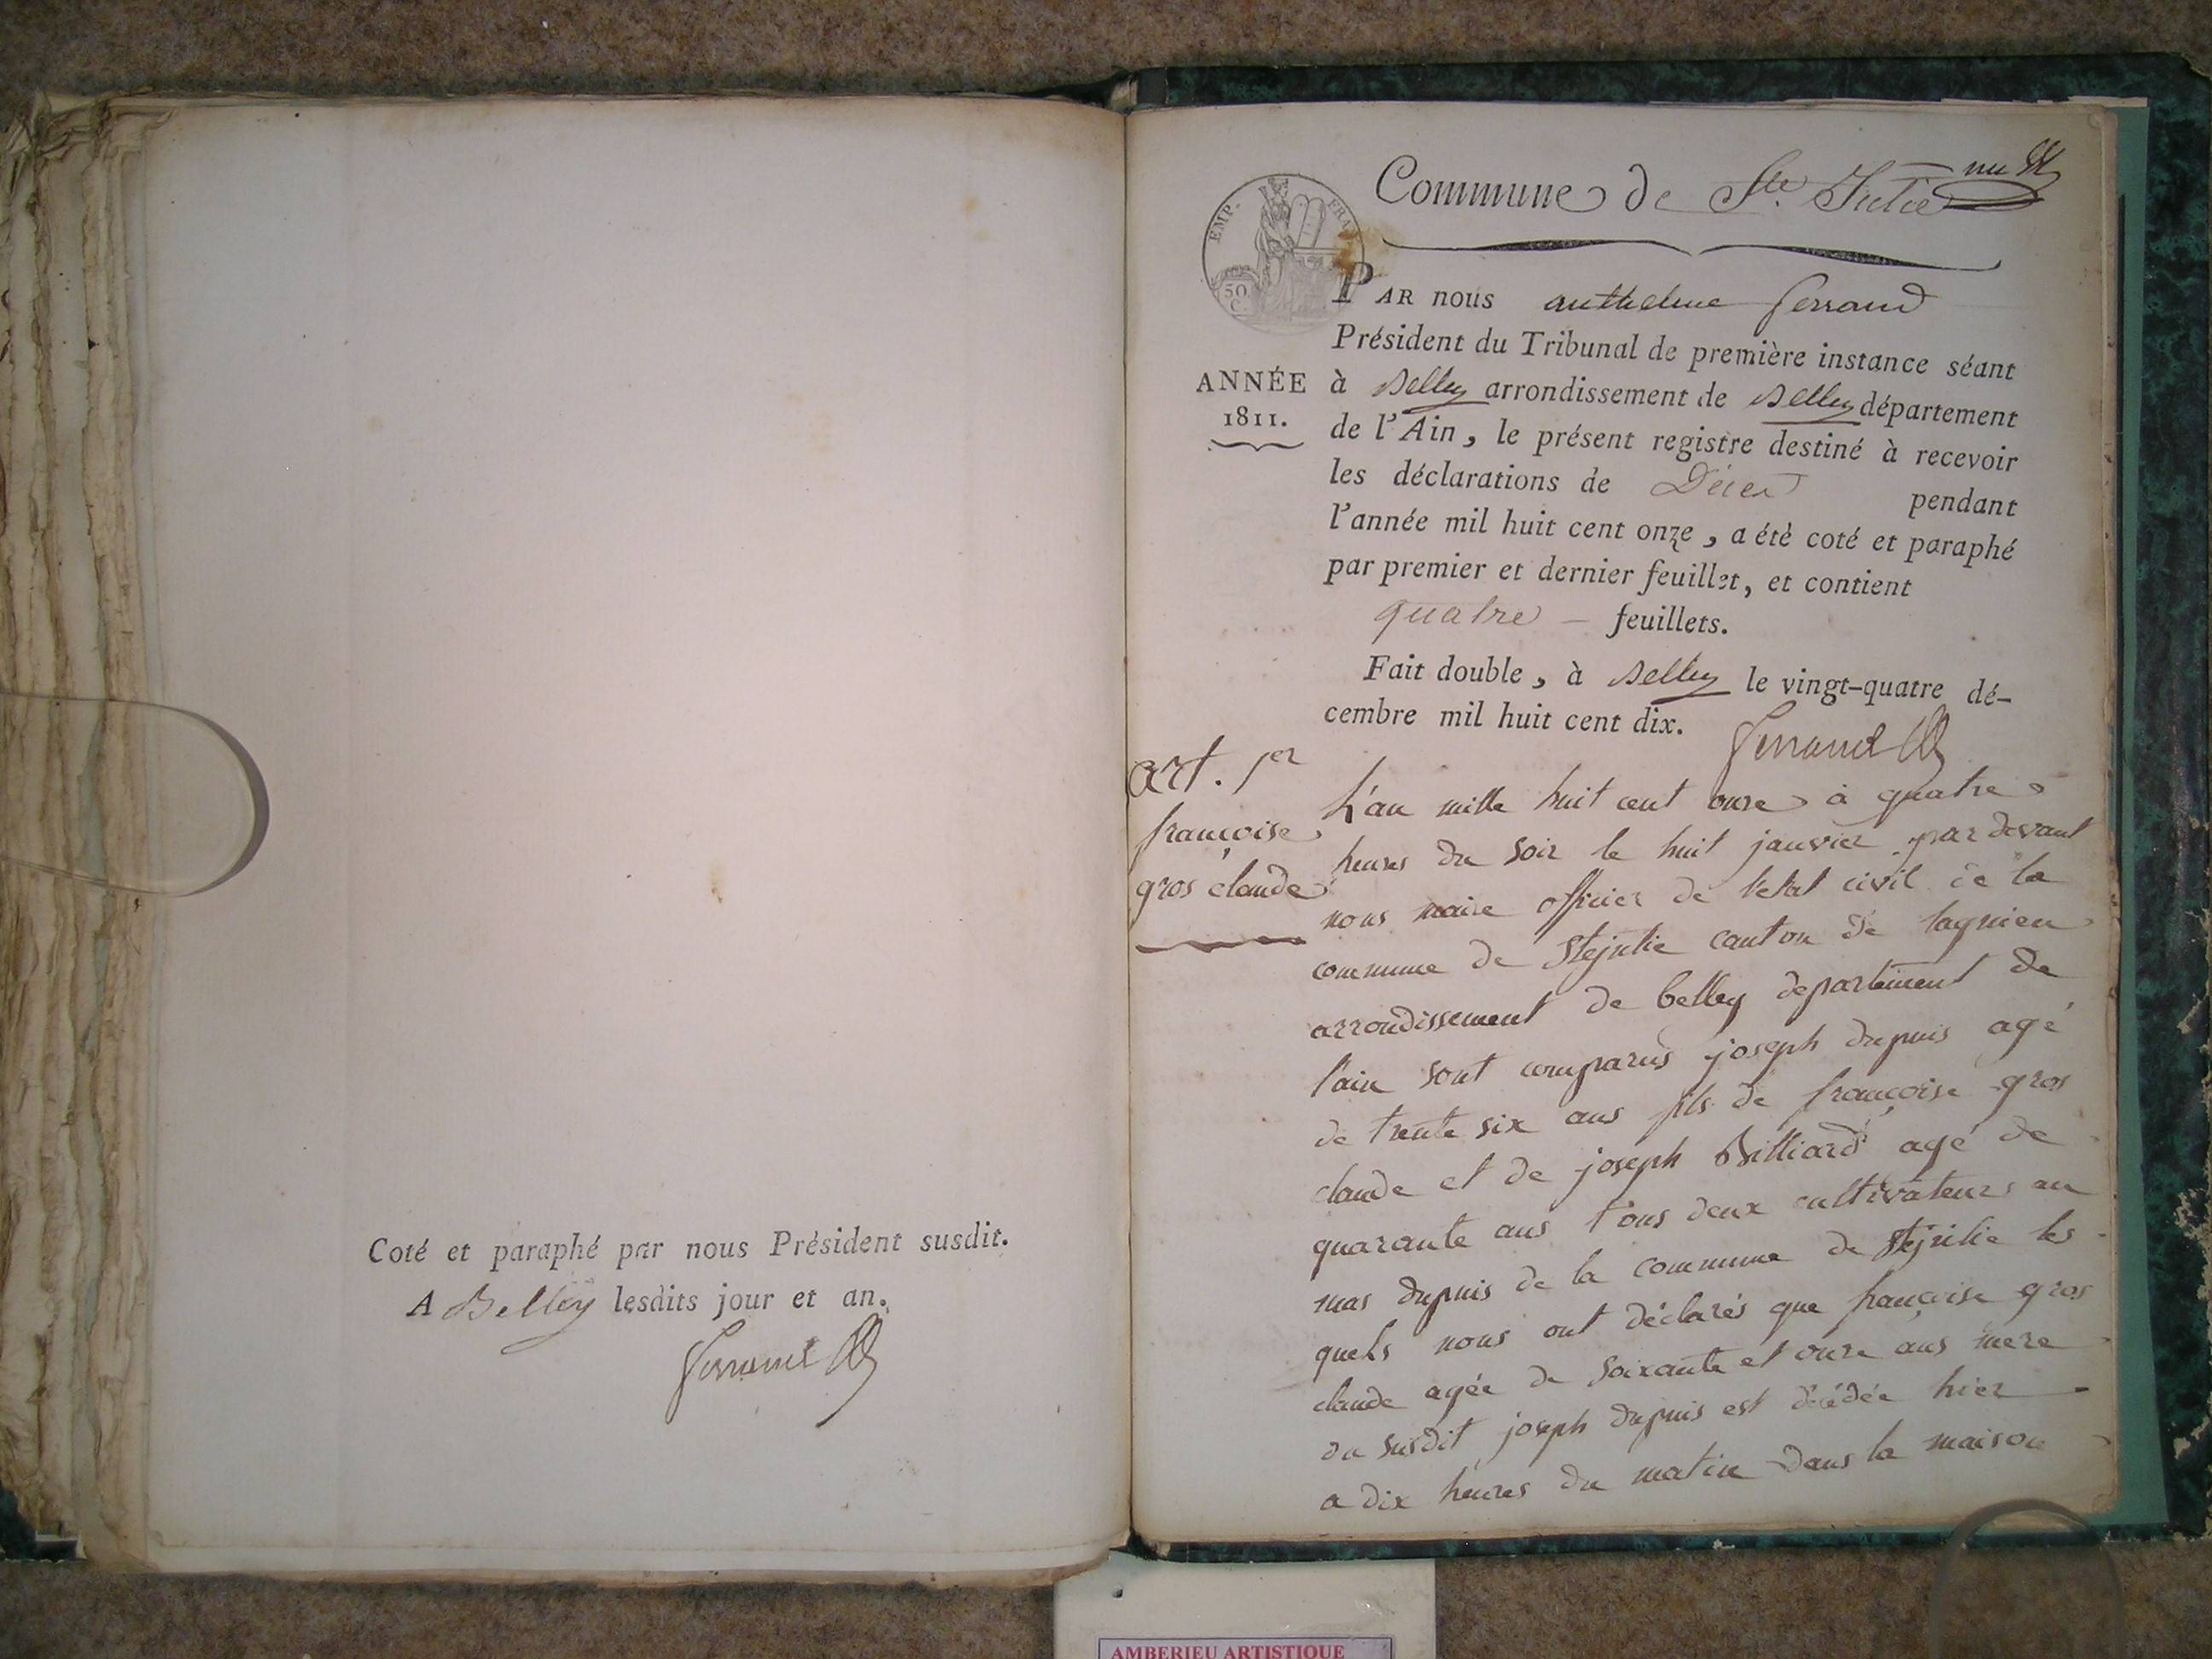 Coté et paraphé par nous Président susdit.
A Belley lesdits jour et an.
Ferrand
Commune de Ste. Julie
EMP. FRA
50 C.
PAR nous anthelme ferrand
Président du Tribunal de première instance séant
ANNÉE
1811.
à Belley arrondissement de Belley département
de l'Ain, le présent registre destiné à recevoir
les déclarations de Décès pendant
l'année mil huit cent onze, a étè coté et paraphé
par premier et dernier feuillet, et contient
quatre — feuillets.
Fait double, à Belley le vingt-quatre dé-
cembre mil huit cent dix.
Ferrand
art. 1er
françoise
gros claude
L'an mille huit cent onze à quatre
heures du soir le huit janvier par devant
nous maire officier de l'etat civil de la
commune de Stejulie canton de lagnieu
arrondissement de belley departement de
l'ain sont comparus joseph dupuis agé
de trente six ans fils de françoise gros
claude et de joseph Billiard agé de
quarante ans tous deux cultivateurs au
mas dupuis de la commune de Stejulie les
quels nous ont déclarés que françoise gros
claude agée de soixante et onze ans mere
du susdit joseph dupuis est décédée hier
a dix heures du matin dans la maison
AMBERIEU ARTISTIQUE